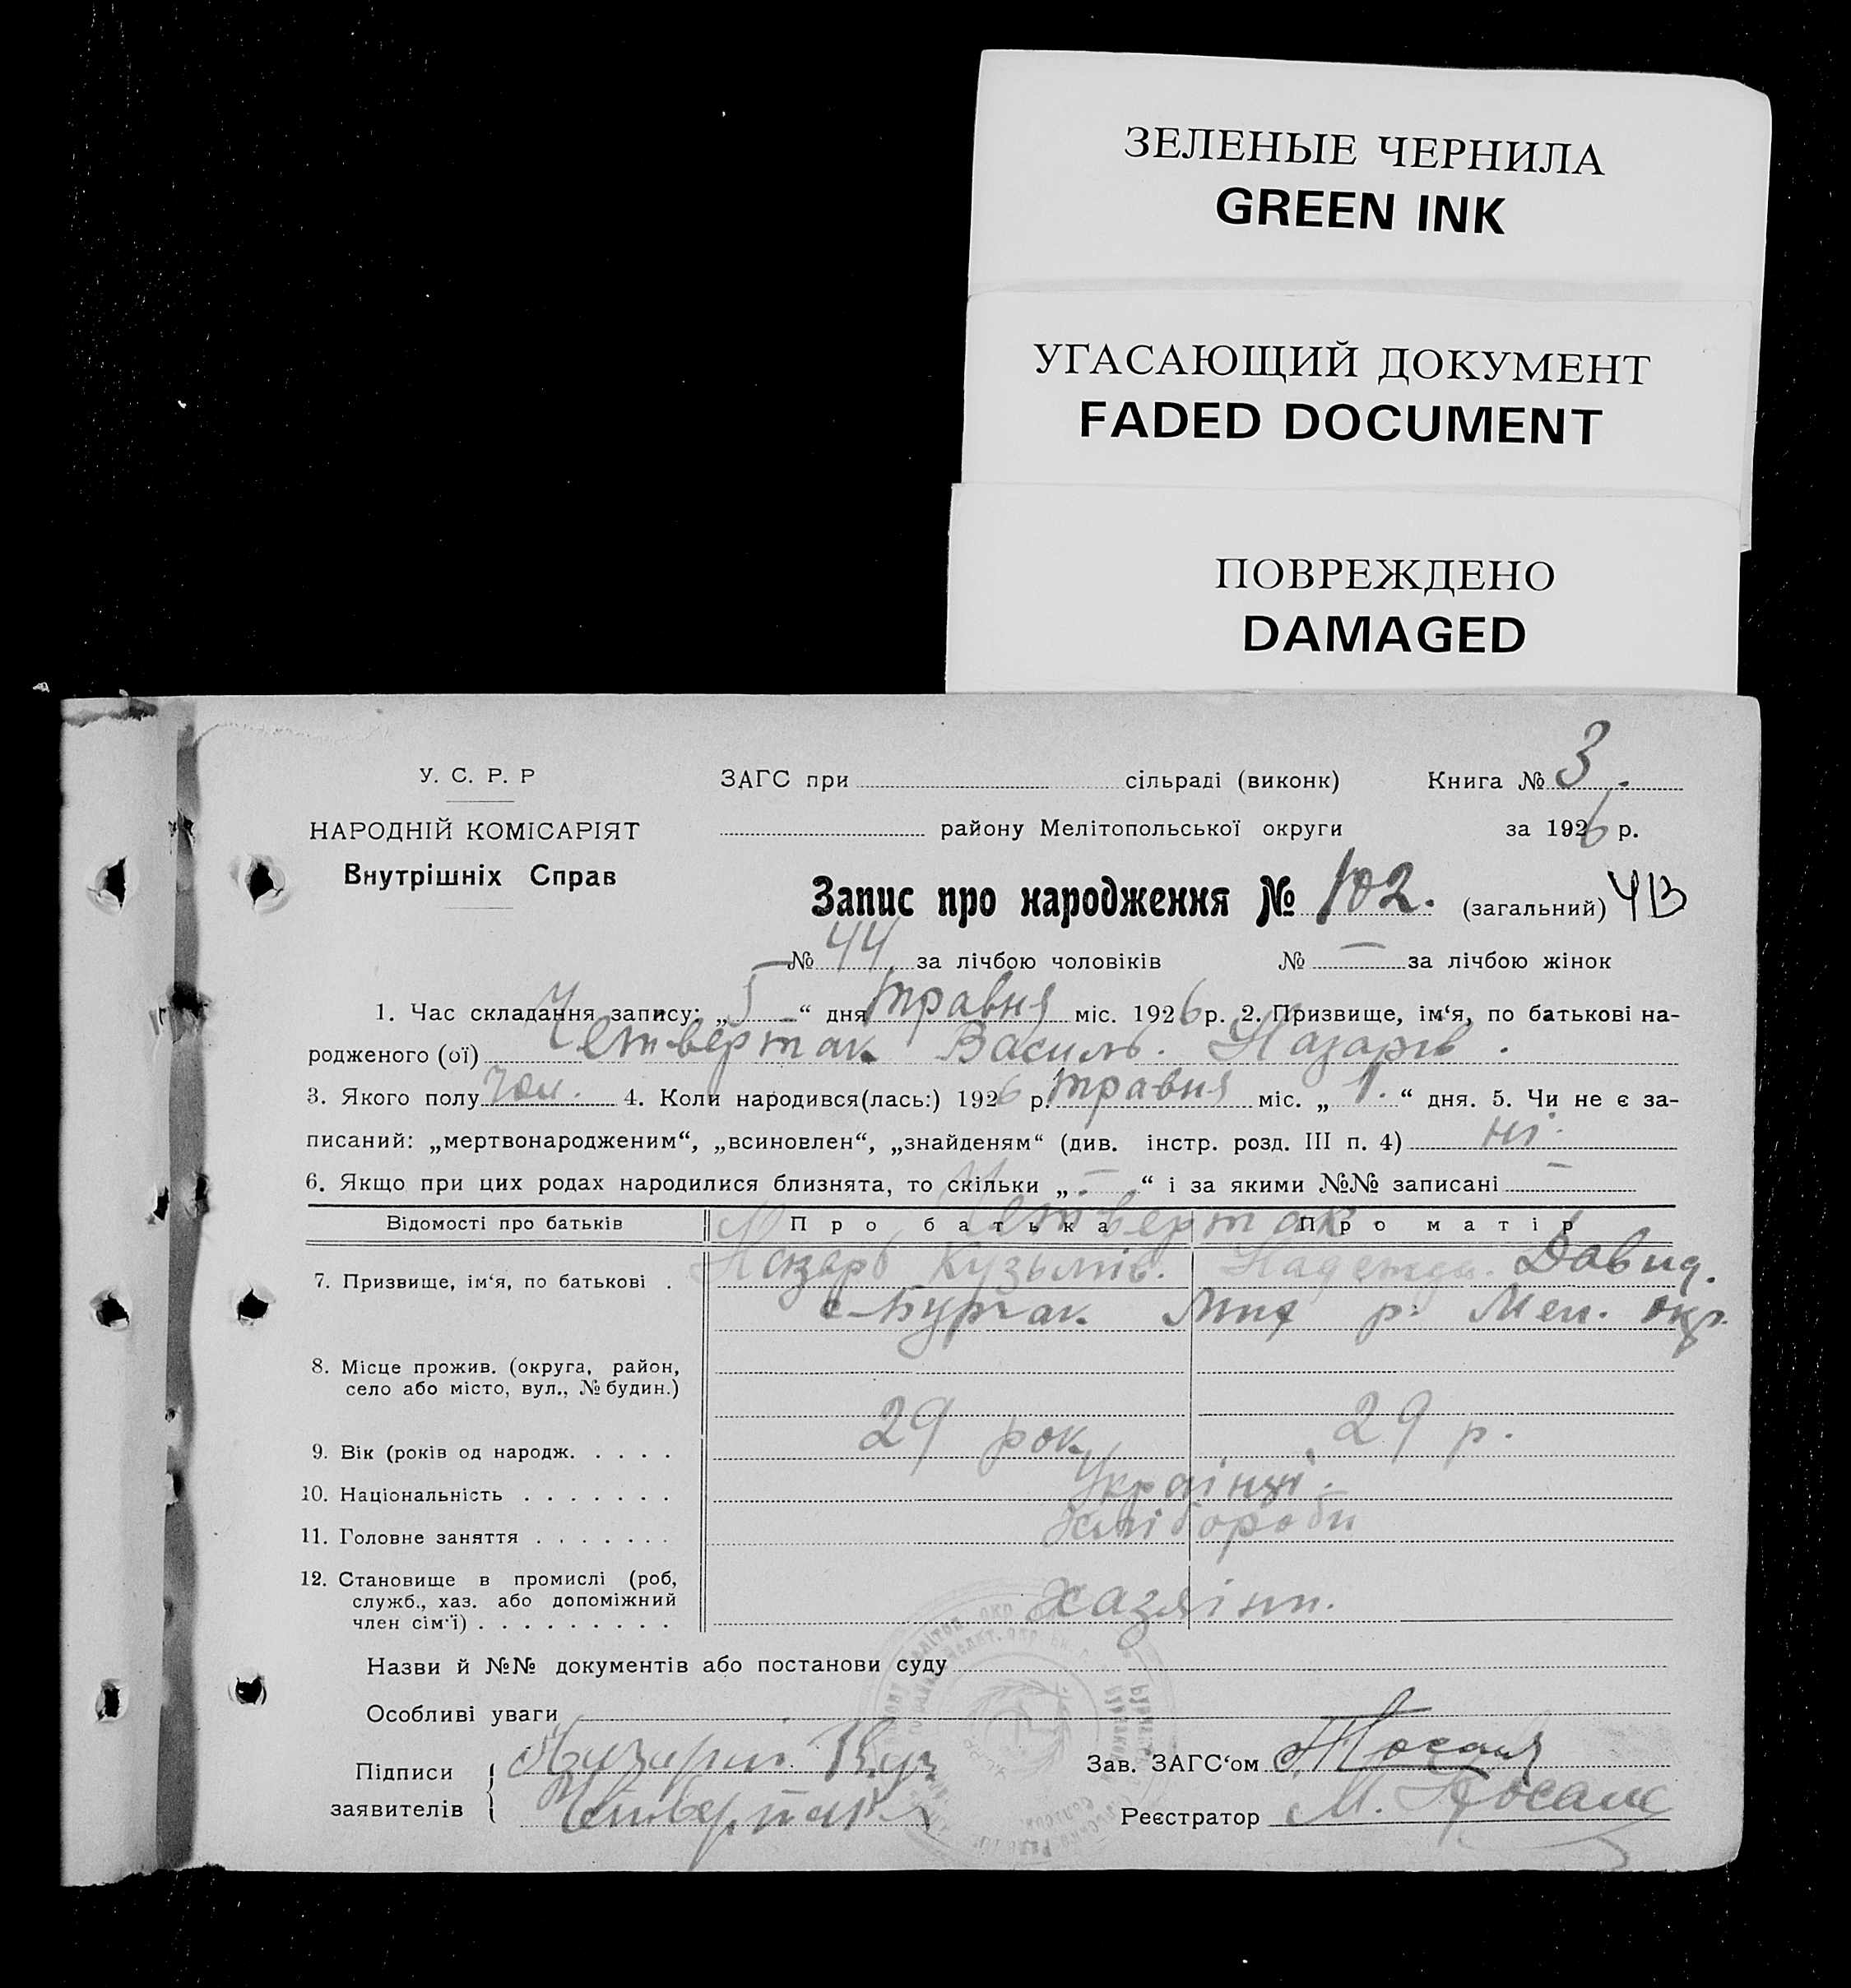 ЗЕЛЕНЫЕ ЧЕРНИЛА
GREEN INK
УГАСАЮЩИЙ ДОКУМЕНТ
FADED DOCUMENT
ПОВРЕЖДЕНО
DAMAGED
У. С. Р. Р
НАРОДНІЙ КОМІСАРІЯТ
Внутрішніх Справ
ЗАГС при сільраді (виконк) Книга № 3.
району Мелітопольської округи за 1926 р.
Запис про народження № 102. (загальний) ЧВ
№ 44 за лічбою чоловіків № — за лічбою жінок
1. Час складання запису: „5“ дня травня міс. 1926 р. 2. Призвище, ім‘я, по батькові на-
родженого (ої) Четвертак Василь. Назарів.
3. Якого полу чол. 4. Коли народився(лась:) 1926 р. травня міс. „1.“ дня. 5. Чи не є за-
писаний: „мертвонародженим“, „всиновлен“, „знайденям“ (див. інстр. розд. III п. 4) ні.
6. Якщо при цих родах народилися близнята, то скільки „—“ і за якими №№ записані —
Відомості про батьків Про батька Про матір
Четвертак
7. Призвище, ім‘я, по батькові . Назарь Кузьмів. Надежда. Давид.
р. Мел. окр.
8. Місце прожив. (округа, район,
село або місто, вул., № будин.)
9. Вік (років од народж. . . . . 29 рок. 29 р.
10. Національність . . . . . . . Українці.
11. Головне заняття . . . . . . . Хлібороби
12. Становище в промислі (роб,
служб., хаз. або допоміжний
член сім‘ї) . . . . . . . . . Хазяіни.
Назви й №№ документів або постанови суду
Особливі уваги
Підписи
заявителів
Четвертак
Зав. ЗАГС‘ом
Реєстратор М.